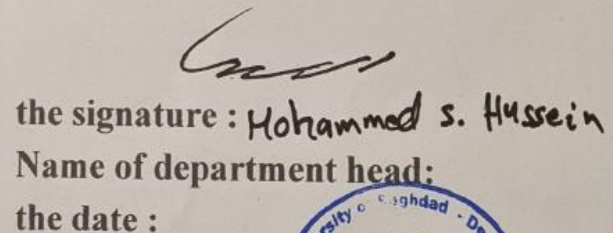 the signature : Mohammed s. Hussein
Name of department head:
the date :